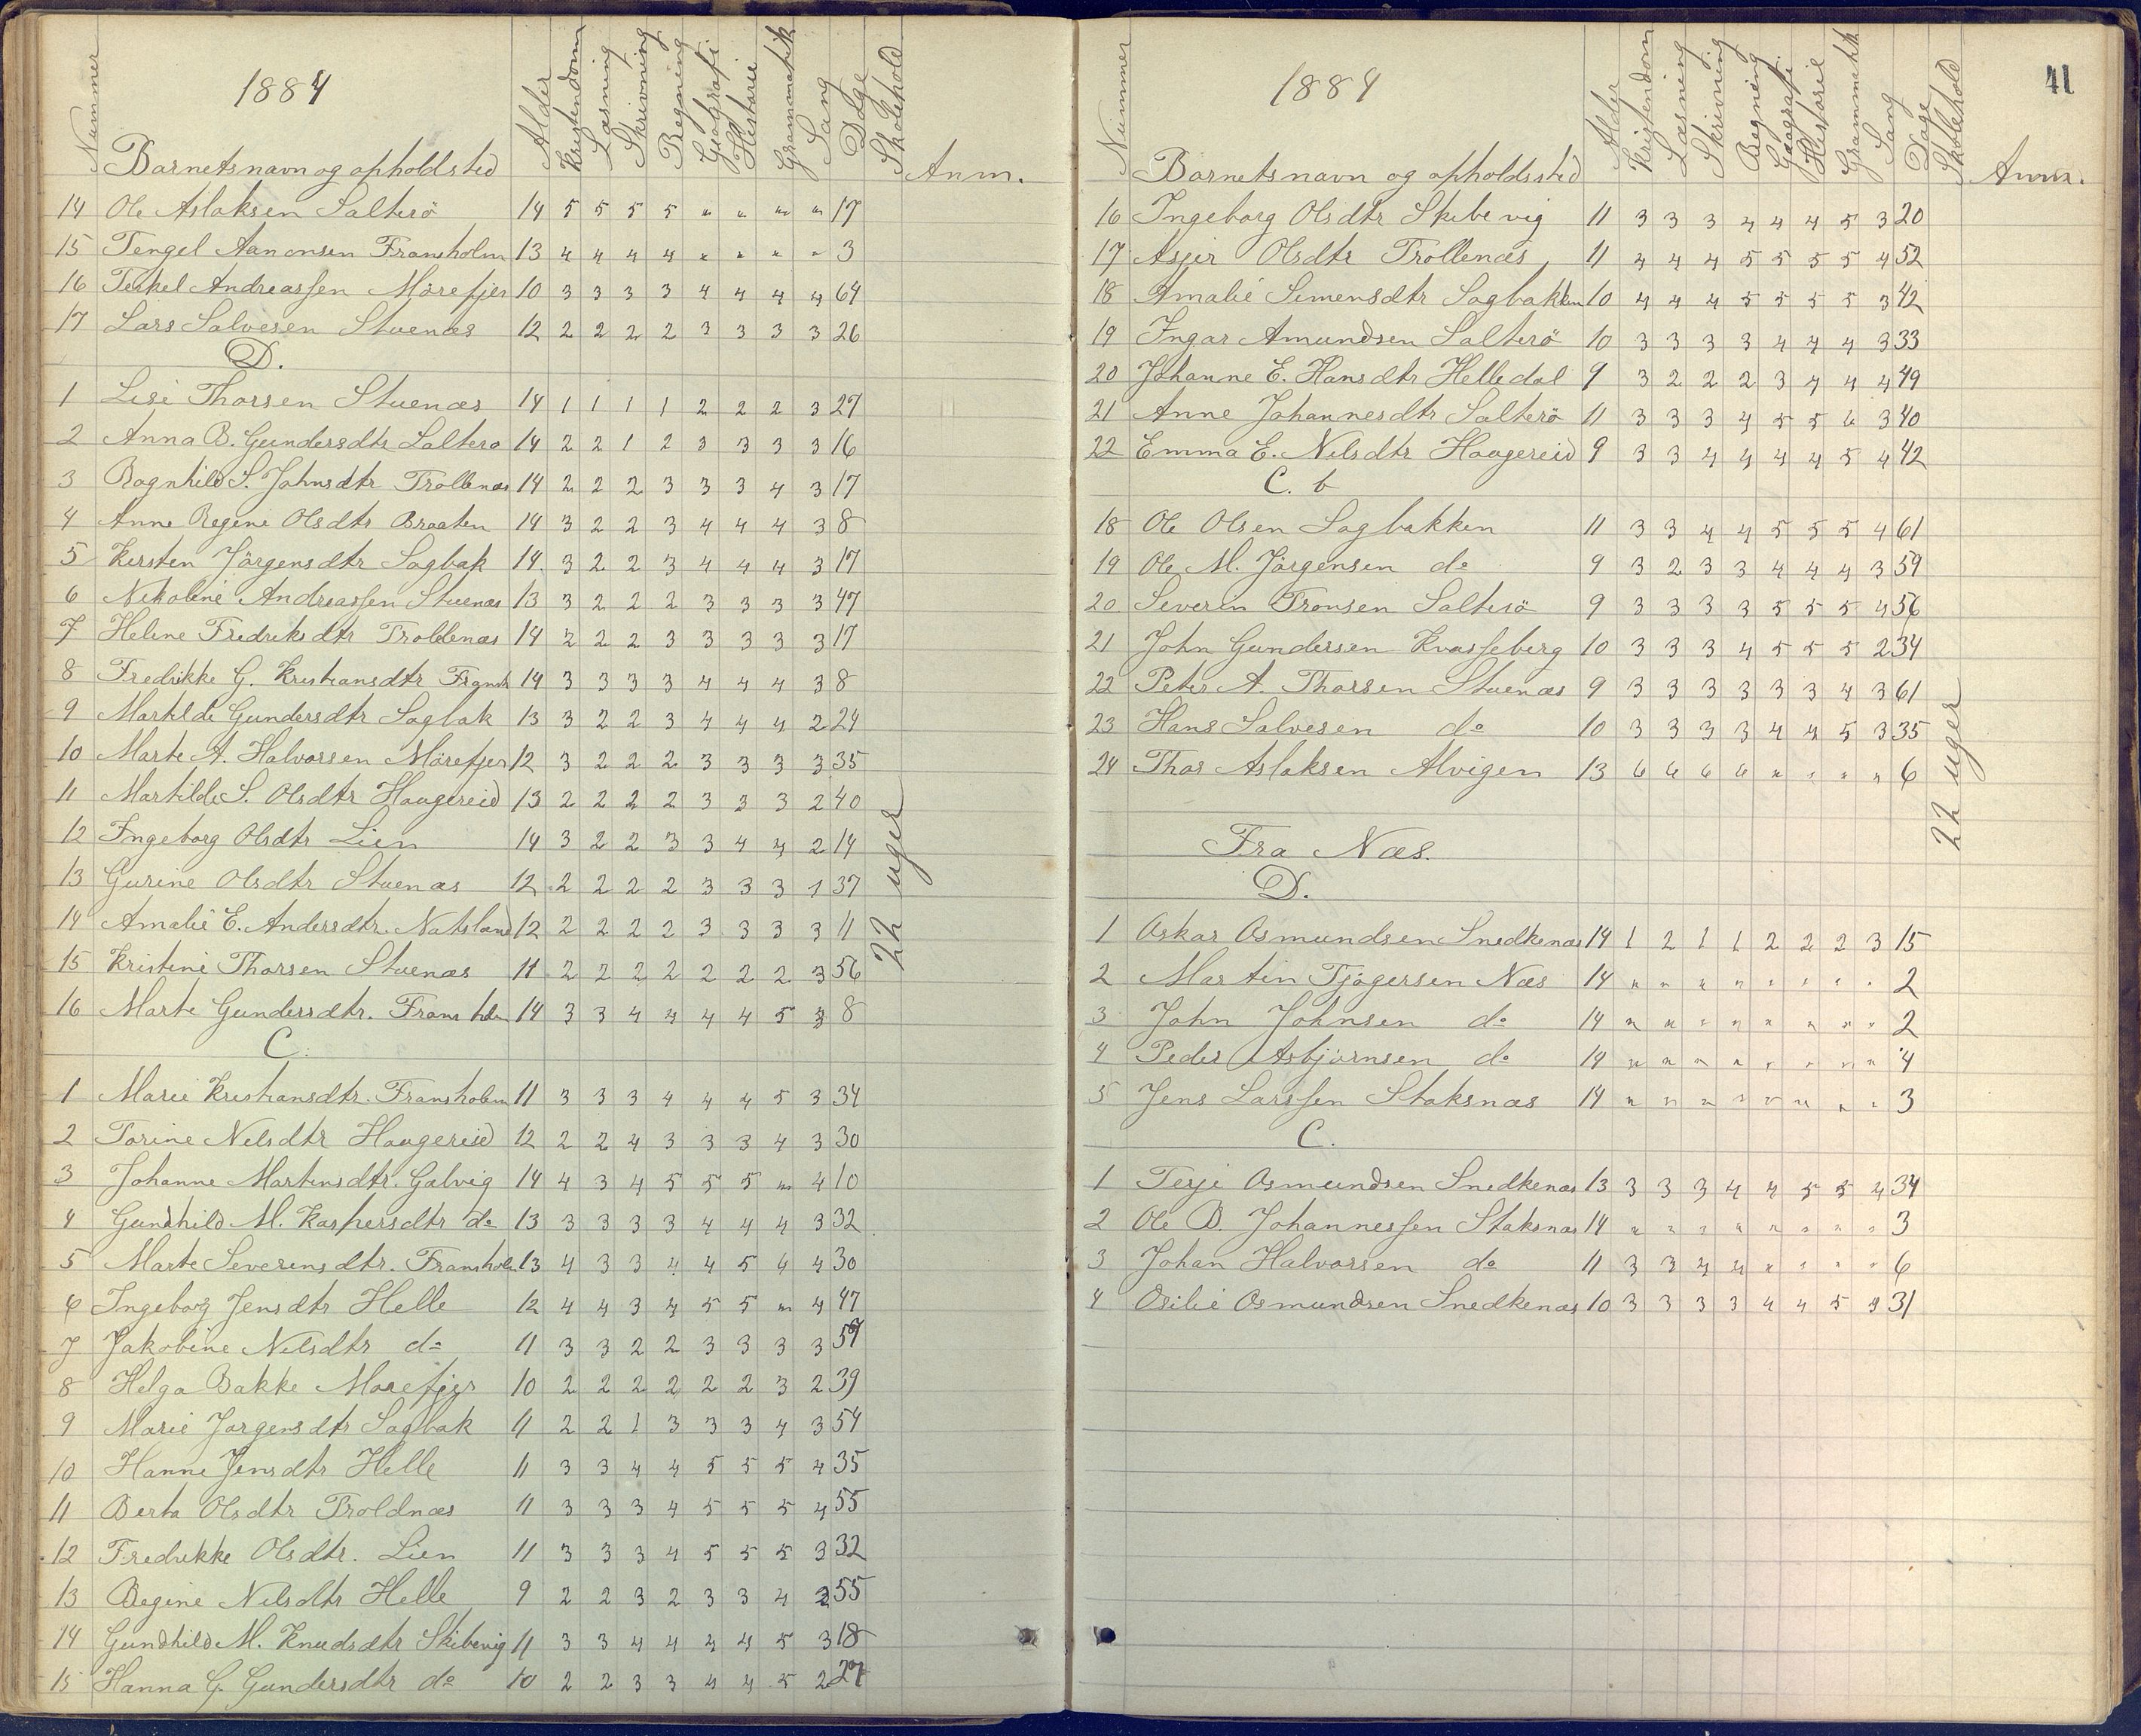 1884
Nummer Barnets navn og opholdsted Alder Kristendom Læsning Skrivning Regning Geografi Historie Grammatik Sang Dage Skolehold Anm.
14 Ole Aslaksen Salterö 14 5 5 5 5 " " " " 17
15 Tengel Aanonsen Fransholm 13 4 4 4 4 " " " " 3
16 Terkel Andreassen Mörefjer 10 3 3 3 3 4 4 4 4 64
17 Lars Salvesen Stuenæs 12 2 2 2 2 3 3 3 3 26
D.
1 Lisi Thorsen Stuenæs 14 1 1 1 1 2 2 2 3 27
2 Anna B. Gundersdtr Saltero 14 2 2 1 2 3 3 3 3 16
3 Ragnhild S. Johnsdtr Trollenæs 14 2 2 2 3 3 3 4 3 17
4 Anne Regine Olsdtr Braaten 14 3 2 2 3 4 4 4 3 8
5 Kirsten Jörgensdtr Sagbak 14. 3 2 2 3 4 4 4 3 17
6 Nikoline Andreassen Stuenæs 13 3 2 2 2 3 3 3 3 47
7 Helene Fredriksdtr Trollenæs 14 2 2 2 3 3 3 3 3 17
8 Fredrikke G. Kristiansdtr Fransh 14 3 3 3 3 4 4 4 3 8
9 Martilde Gundersdtr Sagbak 13 3 2 2 3 4 4 4 2 24
10 Marte A. Halvorsen Mörefjer 12 3 2 2 2 3 3 3 3 35
11 Martilde S. Olsdtr Haugereid 13 2 2 2 2 3 3 3 2 40
12 Ingeborg Olsdtr Lien 14 3 2 2 3 3 4 4 2 14
13 Gurine Olsdtr Stuenæs 12 2 2 2 2 3 3 3 1 37
14 Amalie E. Andersdtr. Natsland 12 2 2 2 2 3 3 3 3 11
15 Kristine Thorsen Stuenæs 11 2 2 2 2 2 2 2 3 56
16 Marte Gundersdtr. Fransholm 14 3 3 4 4 4 4 5 3 8
22 uger
C.
1 Marie Kristiansdtr. Fransholm 11 3 3 3 4 4 4 5 3 34
2 Torine Nelsdtr Haugereid 12 2 2 4 3 3 3 4 3 30
3 Johanne Martinsdtr. Galvig 14 4 3 4 5 5 5 " 4 10
4 Gundhild M. Kaspersdtr do 13 3 3 3 3 4 4 4 3 32
5 Marte Severinsdtr. Fransholm 13 4 3 3 4 4 5 6 4 30
6 Ingeborg Jensdtr Helle 12 4 4 3 4 5 5 " 4 47
7 Jakobine Nilsdtr do 11 3 3 2 2 3 3 3 3 57
8 Helga Bakke Morefjer 10 2 2 2 2 2 2 3 2 39
9 Marie Jorgensdtr Sagbak 11 2 2 1 3 3 3 4 3 54
10 Hanne Jensdtr Helle 11 3 3 4 4 5 5 5 4 35
11 Berta Olsdtr Troldnæs 11 3 3 3 4 5 5 5 4 55
12 Fredrikke Olsdtr. Lien 11 3 3 3 4 5 5 5 3 32
13 Regine Nilsdtr Helle 9 2 2 3 2 3 3 4 2 55
14 Gundhild M. Knudsdtr Skibevig 11 3 3 4 4 4 4 5 3 18
15 Hanna G. Gundersdtr do 10 2 2 3 3 4 4 5 2 27
41
1884
Nummer Barnets navn og opholdssted Alder Kristendom Læsning Skrivning Regning Geografi Historie Grammatik Sang Dage Skolehold Anm.
16 Ingeborg Olsdtr Skibevig 11 3 3 3 4 4 4 5 3 20
17 Asjer Olsdtr Trollenæs 11 4 4 4 5 5 5 5 4 52
18 Amalie Simensdtr Sagbakken 10 4 4 4 5 5 5 5 3 42
19 Ingar Amundsen Salterö 10 3 3 3 3 4 4 4 3 33
20 Johanne E. Hansdtr Helledal 9 3 2 2 2 3 4 4 4 49
21 Anne Johannesdtr Salterö 11 3 3 3 4 5 5 6 3 40
22 Emma E. Nilsdtr Haugereid 9 3 3 4 4 4 4 5 4 42
C. b
18 Ole Olsen Sagbakken 11 3 3 4 4 5 5 5 4 61
19 Ole M. Jörgensen do 9 3 2 3 3 4 4 4 3 59
20 Severin Tronsen Salterö 9 3 3 3 3 5 5 5 4 56
21 John Gundersen Kvasseberg 10 3 3 3 4 5 5 5 2 34
22 Peter A. Thorsen Stuenæs 9 3 3 3 3 3 3 4 3 61
23 Hans Salvesen do 10 3 3 3 3 4 4 5 3 35
24 Thor Aslaksen Alvigen 13 6 6 6 6 " " " " 6
22 uger
Fra Næs.
D.
1 Oskar Osmundsen Snedkenæs 14 1 2 1 1 2 2 2 3 15
2 Martin Tjögersen Næs 14 " " " " " " " " 2
3 John Johnsen do 14 " " " " " " " " 2
4 Peder Asbjörnsen do 14 " " " " " " " " 4
5 Jens Larssen Staksnæs 14 " " " " " " " " 3
C.
1 Terje Osmundsen Snedkenæs 13 3 3 3 4 4 5 5 4 34
2 Ole B. Johannessen Staksnæs 14 " " " " " " " " 3
3 Johan Halvorsen do 11 3 3 4 4 " " " " 6
4 Osilie Osmundsen Snedkenæs 10 3 3 3 3 4 4 5 3 31